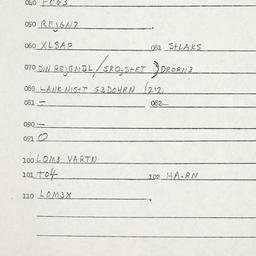 040 FOG3
050 REIGN7
060 XL8AP 061 StLAKS
070 DIN REIGNDL / SRO,SHET ) DRORN3
080 LANK NIStT G3DC4RN (212)
081 –
082 –
090 –
091 O
100 LOM3 VARTN
101 TO4 100 HA.RN
110 LOM3X